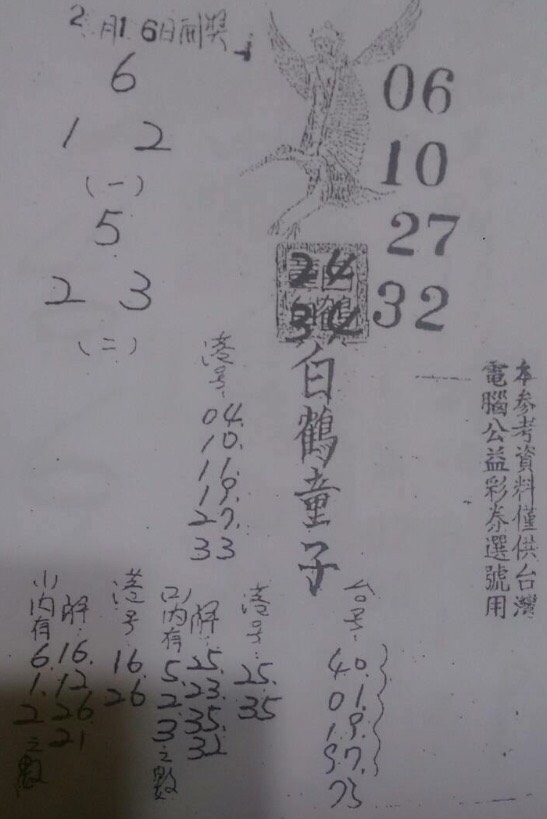 2月16日開獎
6
1 2
(一)
5
2 3
(二)
06
10
27
32
24
34
白鶴童子
本参考資料僅供台灣
電腦公益彩券選號用
港号:
04.
10.
11.
19.
27.
33
台号:
40.
01.
19.
97.
75
港号:
25.
35
解:
25.
23.
35.
32
内有
5.
2.
3
之數
港号
16.
26
解:
16.
12
26
21
内有
6.
1.
2
之數